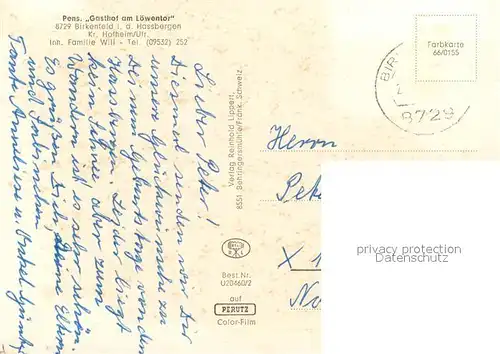 Pens. „Gasthof am Löwentor"
8729 Birkenfeld i. d. Hassbergen
Kr. Hofheim/Ufr.
Inh. Familie Will - Tel. (09532) 252
Lieber Peter!
Diesmal senden wir Dir
unsere Glückwünsche zu
Deinem Geburtstage von den
Hassbergen. Leider liegt
kein Schnee, aber zum
Wandern ist es sehr schön.
Es grüßen Dich, Deine Eltern
und
Tante Anneliese u. Onkel
Verlag Reinhold Lippert,
8551 Behringersmühle/Fränk. Schweiz
Best.Nr.
U20460/2
auf
PERUTZ
Color-Film
Farbkarte
66/0155
BIR
8729
Herrn
Pete
X 1
No
privacy protection
www.ansichtskarten-center.de